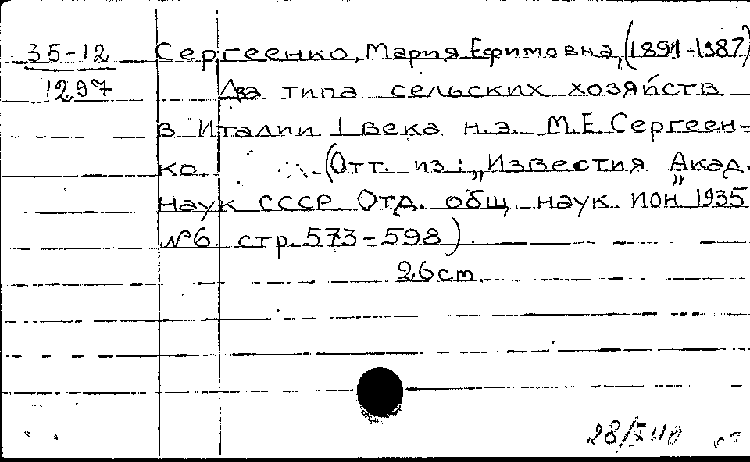 35-12
1297
Сергеенко, Мария Ефимовна, (1891-1987)
Два типа сельских хозяйств
в Италии I века н.э. М.Е. Сергеен-
ко. (Отт. из: „Известия Акад.
Наук СССР Отд. общ. наук ИОН" 1935
№6 стр. 573-598)
26 cm.